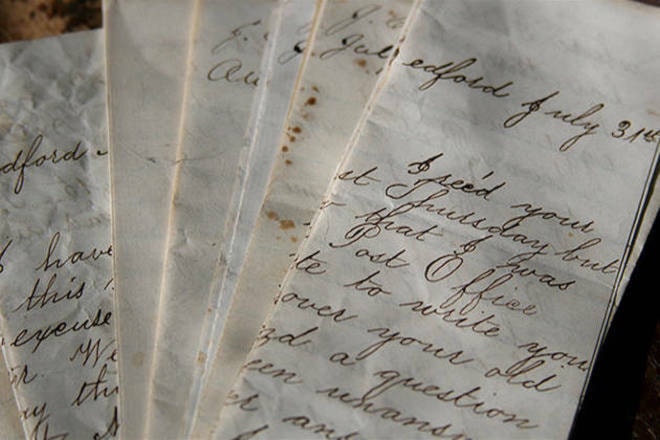 dford
I have
this
excuse
We
J.
Au
J.
Jul
edford July 31st
I rec'd your
st Thursday but
that I was
Post Office
te to write you
over your old
zd a question
een unansw
er an